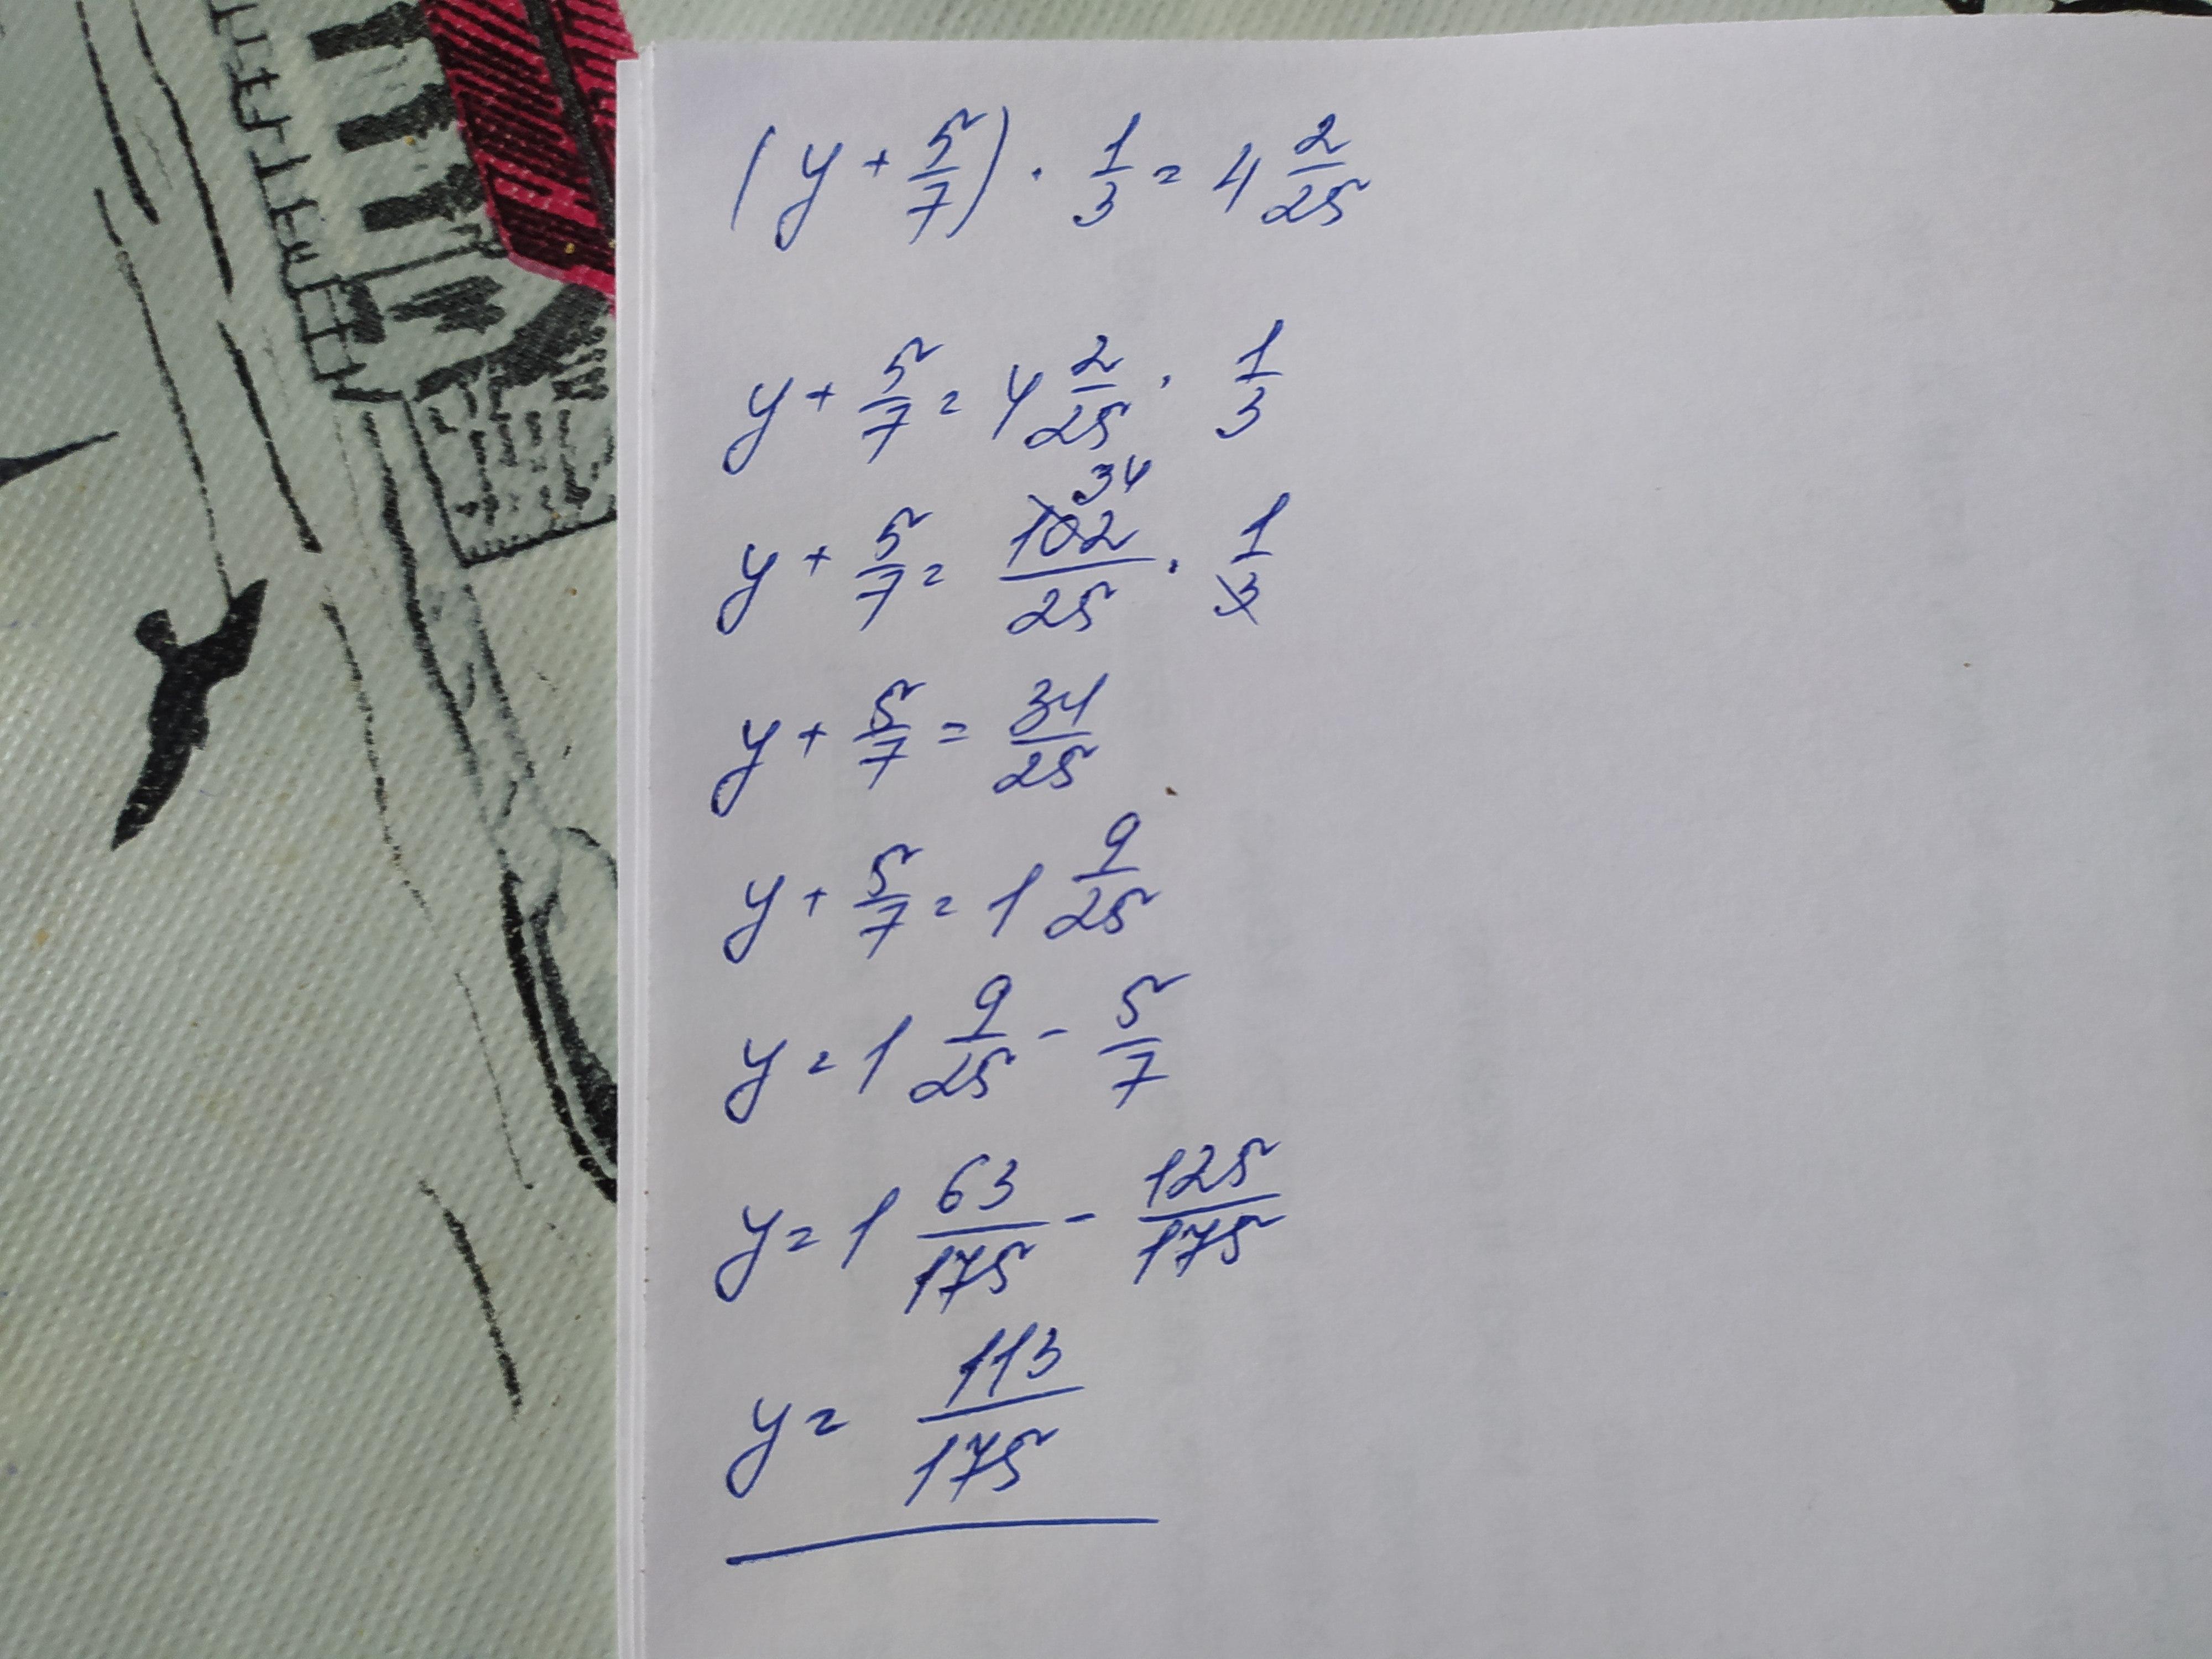 (y + 5/7) · 1/3 = 4 2/25
y + 5/7 = 4 2/25 · 1/3
34
y + 5/7 = 102/25 · 1/3
y + 5/7 = 34/25
y + 5/7 = 1 9/25
y = 1 9/25 - 5/7
y = 1 63/175 - 125/175
y = 113/175